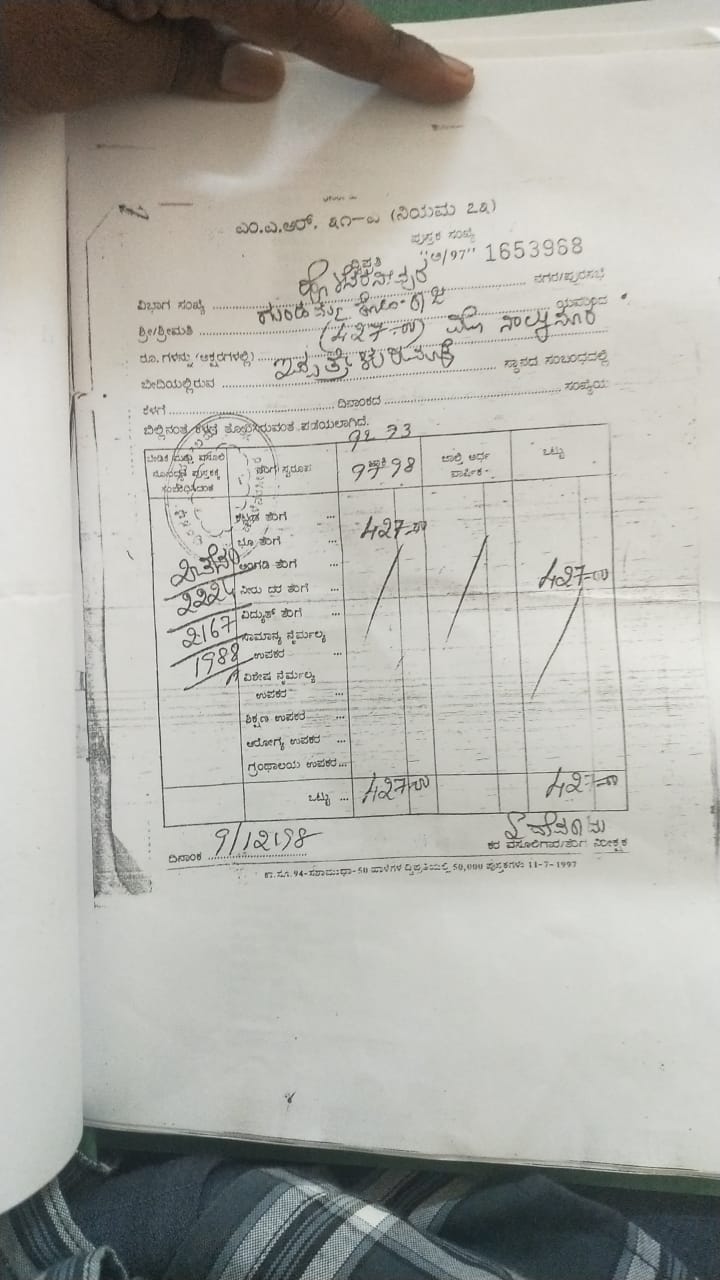 ಎಂ.ಎ.ಆರ್. ೩೧-ಎ (ನಿಯಮ ೭೩)
ಪುಸ್ತಕ ಸಂಖ್ಯೆ
ದ್ವಿಪ್ರತಿ "ಅ/97" 1653968
ವಿಭಾಗ ಸಂಖ್ಯೆ ನಗರ/ಪುರಸಭೆ
ಶ್ರೀ/ಶ್ರೀಮತಿ ಯವರಿಂದ
ರೂ. ಗಳನ್ನು (ಅಕ್ಷರಗಳಲ್ಲಿ) (427-00) ನಾಲ್ಕು ನೂರ
ಬೀದಿಯಲ್ಲಿರುವ ಇಪ್ಪತ್ತೇಳು ರೂ ಮಾತ್ರ ಸ್ಥಾನದ ಸಂಬಂಧದಲ್ಲಿ
ಕೆಳಗೆ ದಿನಾಂಕದ ಸಂಖ್ಯೆಯ
ಬಿಲ್ಲಿನಂತೆ ಕೆಳಗೆ ತೋರಿಸಿರುವಂತೆ ಪಡೆಯಲಾಗಿದೆ.
92 93
ಬೇಡಿಕೆ ಮತ್ತು ವಸೂಲಿ ನೋಂದಣಿ ಪುಸ್ತಕಕ್ಕೆ ಸಂಬಂಧಿಸಿದಂತೆ ತೆರಿಗೆ ಸ್ವರೂಪ ಬಾಕಿ 97 98 ಚಾಲ್ತಿ ಅರ್ಧ ವಾರ್ಷಿಕ ಒಟ್ಟು
ಕಟ್ಟಡ ತೆರಿಗೆ ... 427-00
ಭೂ ತೆರಿಗೆ ...
ಅಂಗಡಿ ತೆರಿಗೆ ... 427-00
2224 ನೀರು ದರ ತೆರಿಗೆ ...
2167 ವಿದ್ಯುತ್ ತೆರಿಗೆ ...
1988 ಸಾಮಾನ್ಯ ನೈರ್ಮಲ್ಯ ಉಪಕರ ...
ವಿಶೇಷ ನೈರ್ಮಲ್ಯ ಉಪಕರ ...
ಶಿಕ್ಷಣ ಉಪಕರ ...
ಆರೋಗ್ಯ ಉಪಕರ ...
ಗ್ರಂಥಾಲಯ ಉಪಕರ ...
ಒಟ್ಟು ... 427-00 427-00
ದಿನಾಂಕ 9/12/98
ಕರ ವಸೂಲಿಗಾರ/ತೆರಿಗೆ ನಿರೀಕ್ಷಕ
ಕಾ.ಸೂ.94-ಸಕಾಮುಧಾ-50 ಹಾಳೆಗಳ ದ್ವಿಪ್ರತಿಯಲ್ಲಿ 50,000 ಪುಸ್ತಕಗಳು 11-7-1997